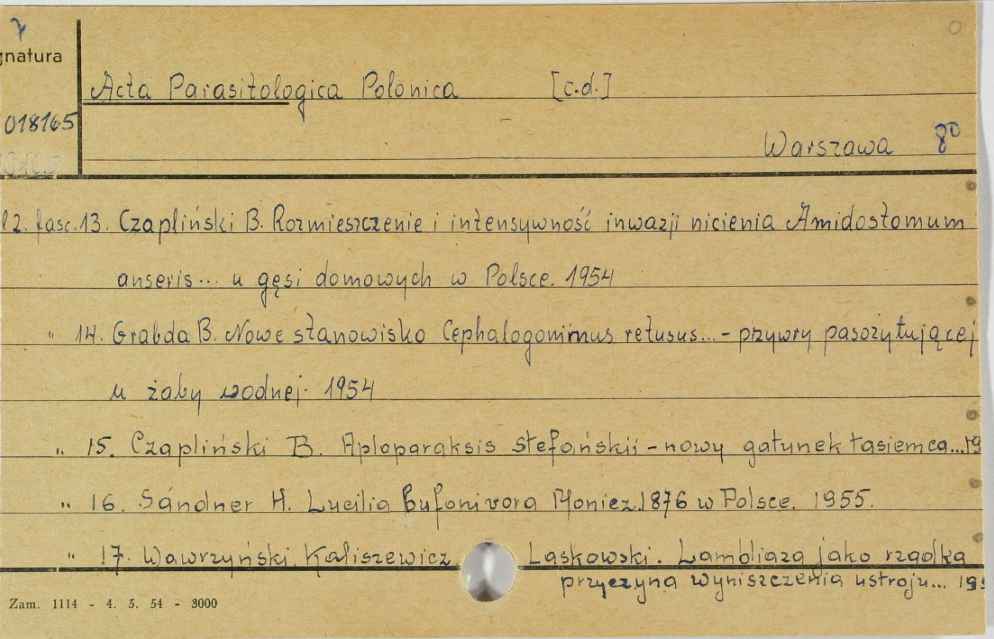 7
gnatura
Acta Parasitologica Polonica [c.d.]
018165
Warszawa 8°
t2. fasc. 13. Czapliński B. Rozmieszczenie i intensywność inwazji nicienia Amidostomum
anseris... u gęsi domowych w Polsce. 1954
" 14. Grabda B. Nowe stanowisko Cephalogonimus retusus... - przywry pasożytującej
u żaby wodnej. 1954
" 15. Czapliński B. Aploparaksis stefańskii - nowy gatunek tasiemca... 19
" 16. Sandner H. Lucilia bufonivora Moniez. 1876 w Polsce. 1955.
" 17. Wawrzyński. Kaliszewicz Laskowski. Lambliaza jako rzadka
przyczyna wyniszczenia ustroju... 19
Zam. 1114 - 4. 5. 54 - 3000